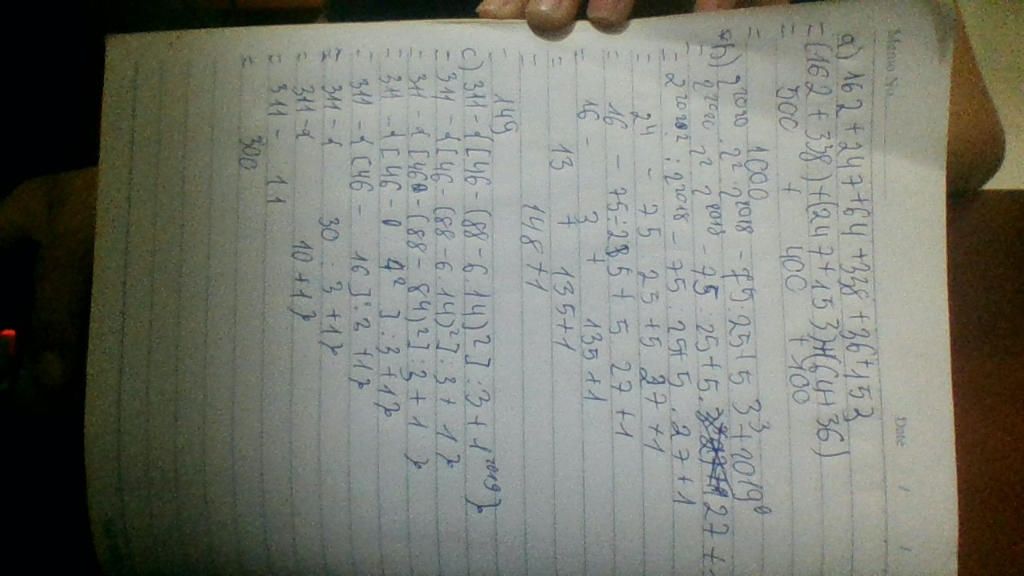 Memo No. Date / /
a) 162 + 247 + 64 + 338 + 36 + 153
= (162 + 338) + (247 + 153) + (64 + 36)
= 500 + 400 + 100
= 1000
b) 2²⁰²⁰ : 2² 2²⁰¹⁸ - 75 : 25 + 5 3³ + 2019⁰
= 2²⁰²⁰ : 2² 2²⁰¹⁸ - 75 : 25 + 5 . 27 +
= 2²⁰²² : 2²⁰¹⁸ - 75 : 25 + 5 . 27 + 1
= 2⁴ - 75 25 + 5 27 + 1
= 16 - 75 : 25 + 5 27 + 1
= 16 - 3 + 135 + 1
= 13 + 135 + 1
= 148 + 1
= 149
c) 311 - {[46 - (88 - 6 . 14)²] : 3 + 1²⁰¹⁹}
= 311 - {[46 - (88 - 6 . 14)²] : 3 + 1}
= 311 - {[46 - (88 - 84)²] : 3 + 1}
= 311 - {[46 - 4²] : 3 + 1}
= 311 - {[46 - 16] : 2 + 1}
= 311 - { 30 : 3 + 1}
= 311 - { 10 + 1}
= 311 - 11
= 300